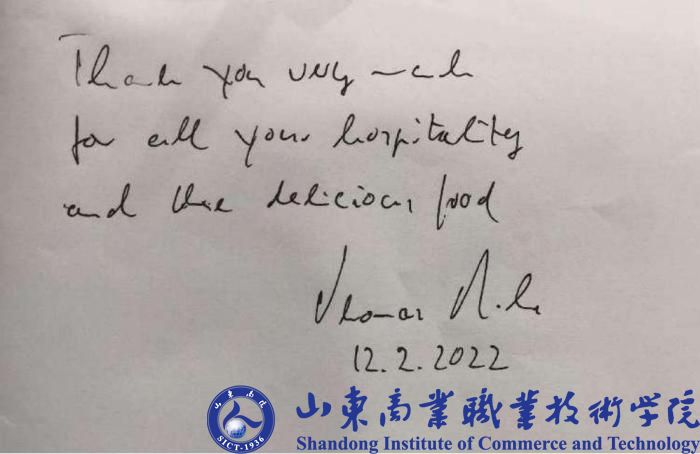 Thank you very much
for all your hospitality
and the delicious food
Thomas
12.2.2022
山東商業職業技術学院
SICT-1936
Shandong Institute of Commerce and Technology